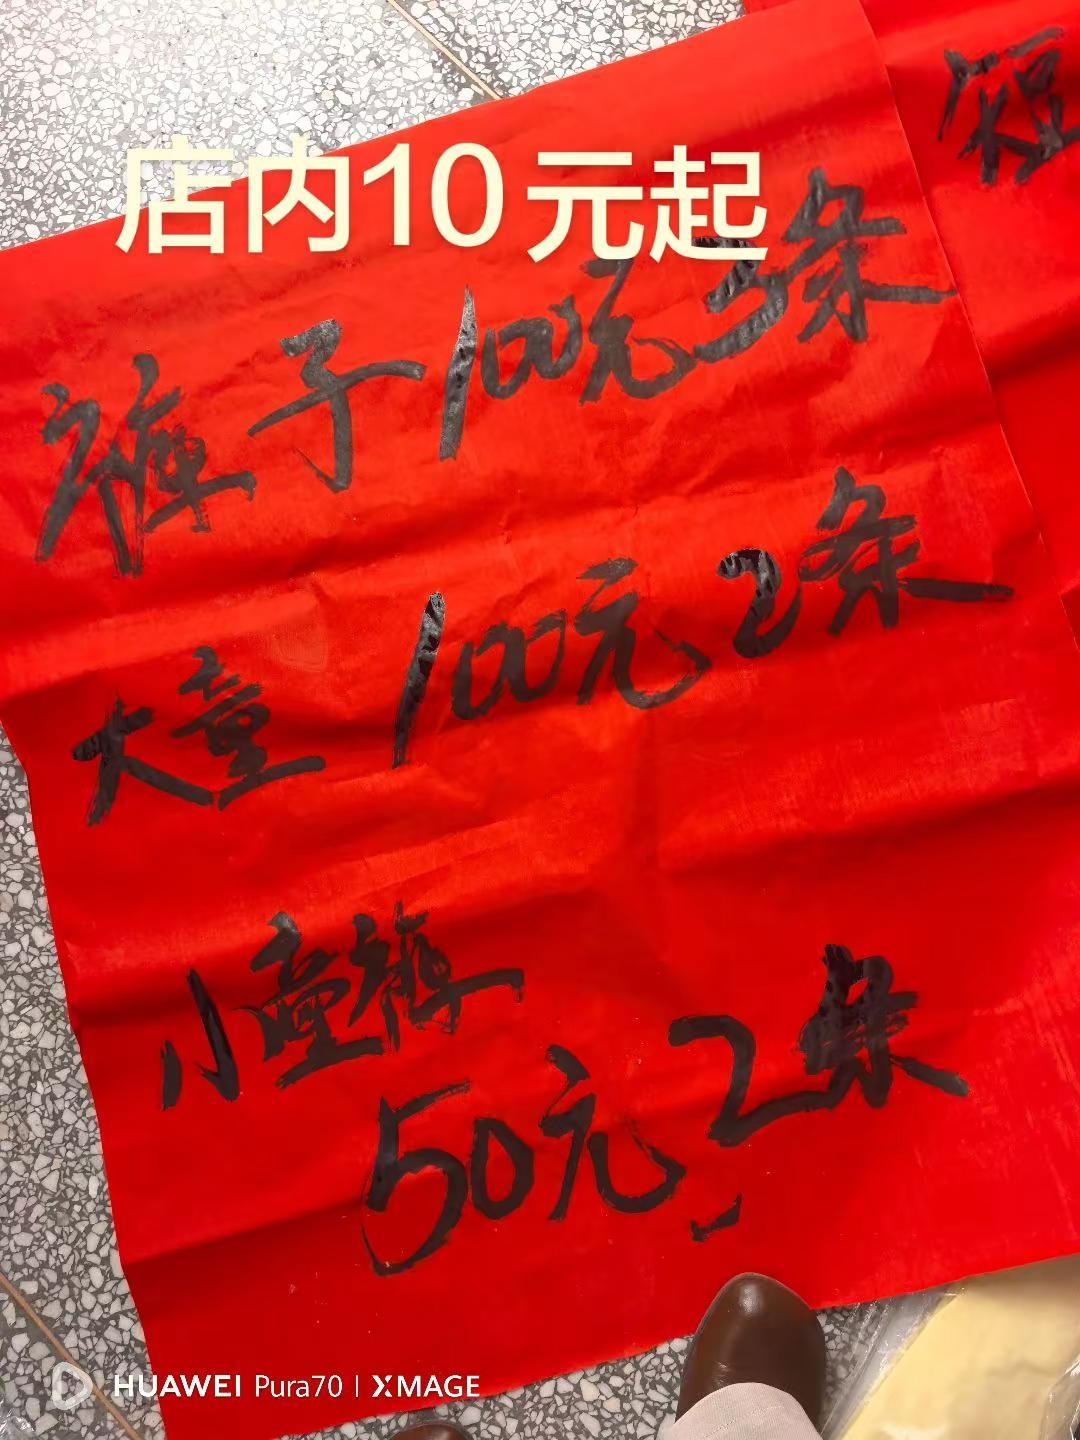 店内10元起
短
裤子100元3条
大童100元2条
小童裤
50元2条
HUAWEI Pura70 | XMAGE